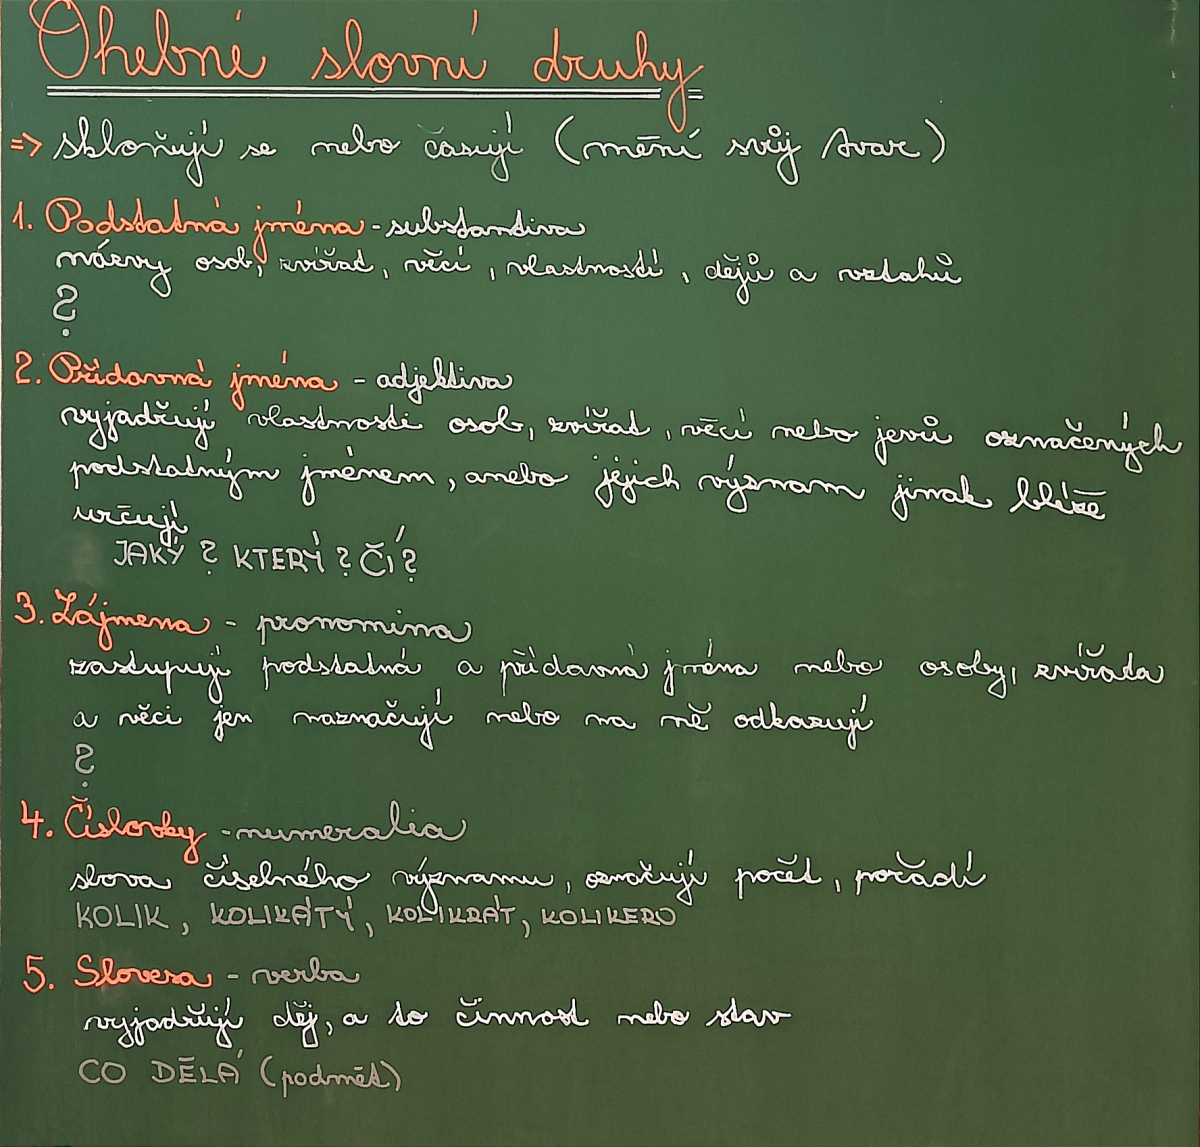 Ohebné slovní druhy
=> skloňují se nebo časují (mění svůj tvar)
1. Podstatná jména - substantiva
názvy osob, zvířat, věcí, vlastností, dějů a vztahů
?
2. Přídavná jména - adjektiva
vyjadřují vlastnosti osob, zvířat, věcí nebo jevů označených
podstatným jménem, anebo jejich význam jinak blíže
určují
JAKÝ? KTERÝ? ČÍ?
3. Zájmena - pronomina
zastupují podstatná a přídavná jména nebo osoby, zvířata
a věci jen naznačují nebo na ně odkazují
?
4. Číslovky - numeralia
slova číselného významu, označují počet, pořadí
KOLIK, KOLIKÁTÝ, KOLIKRÁT, KOLIKERO
5. Slovesa - verba
vyjadřují děj, a to činnost nebo stav
CO DĚLÁ (podmět)